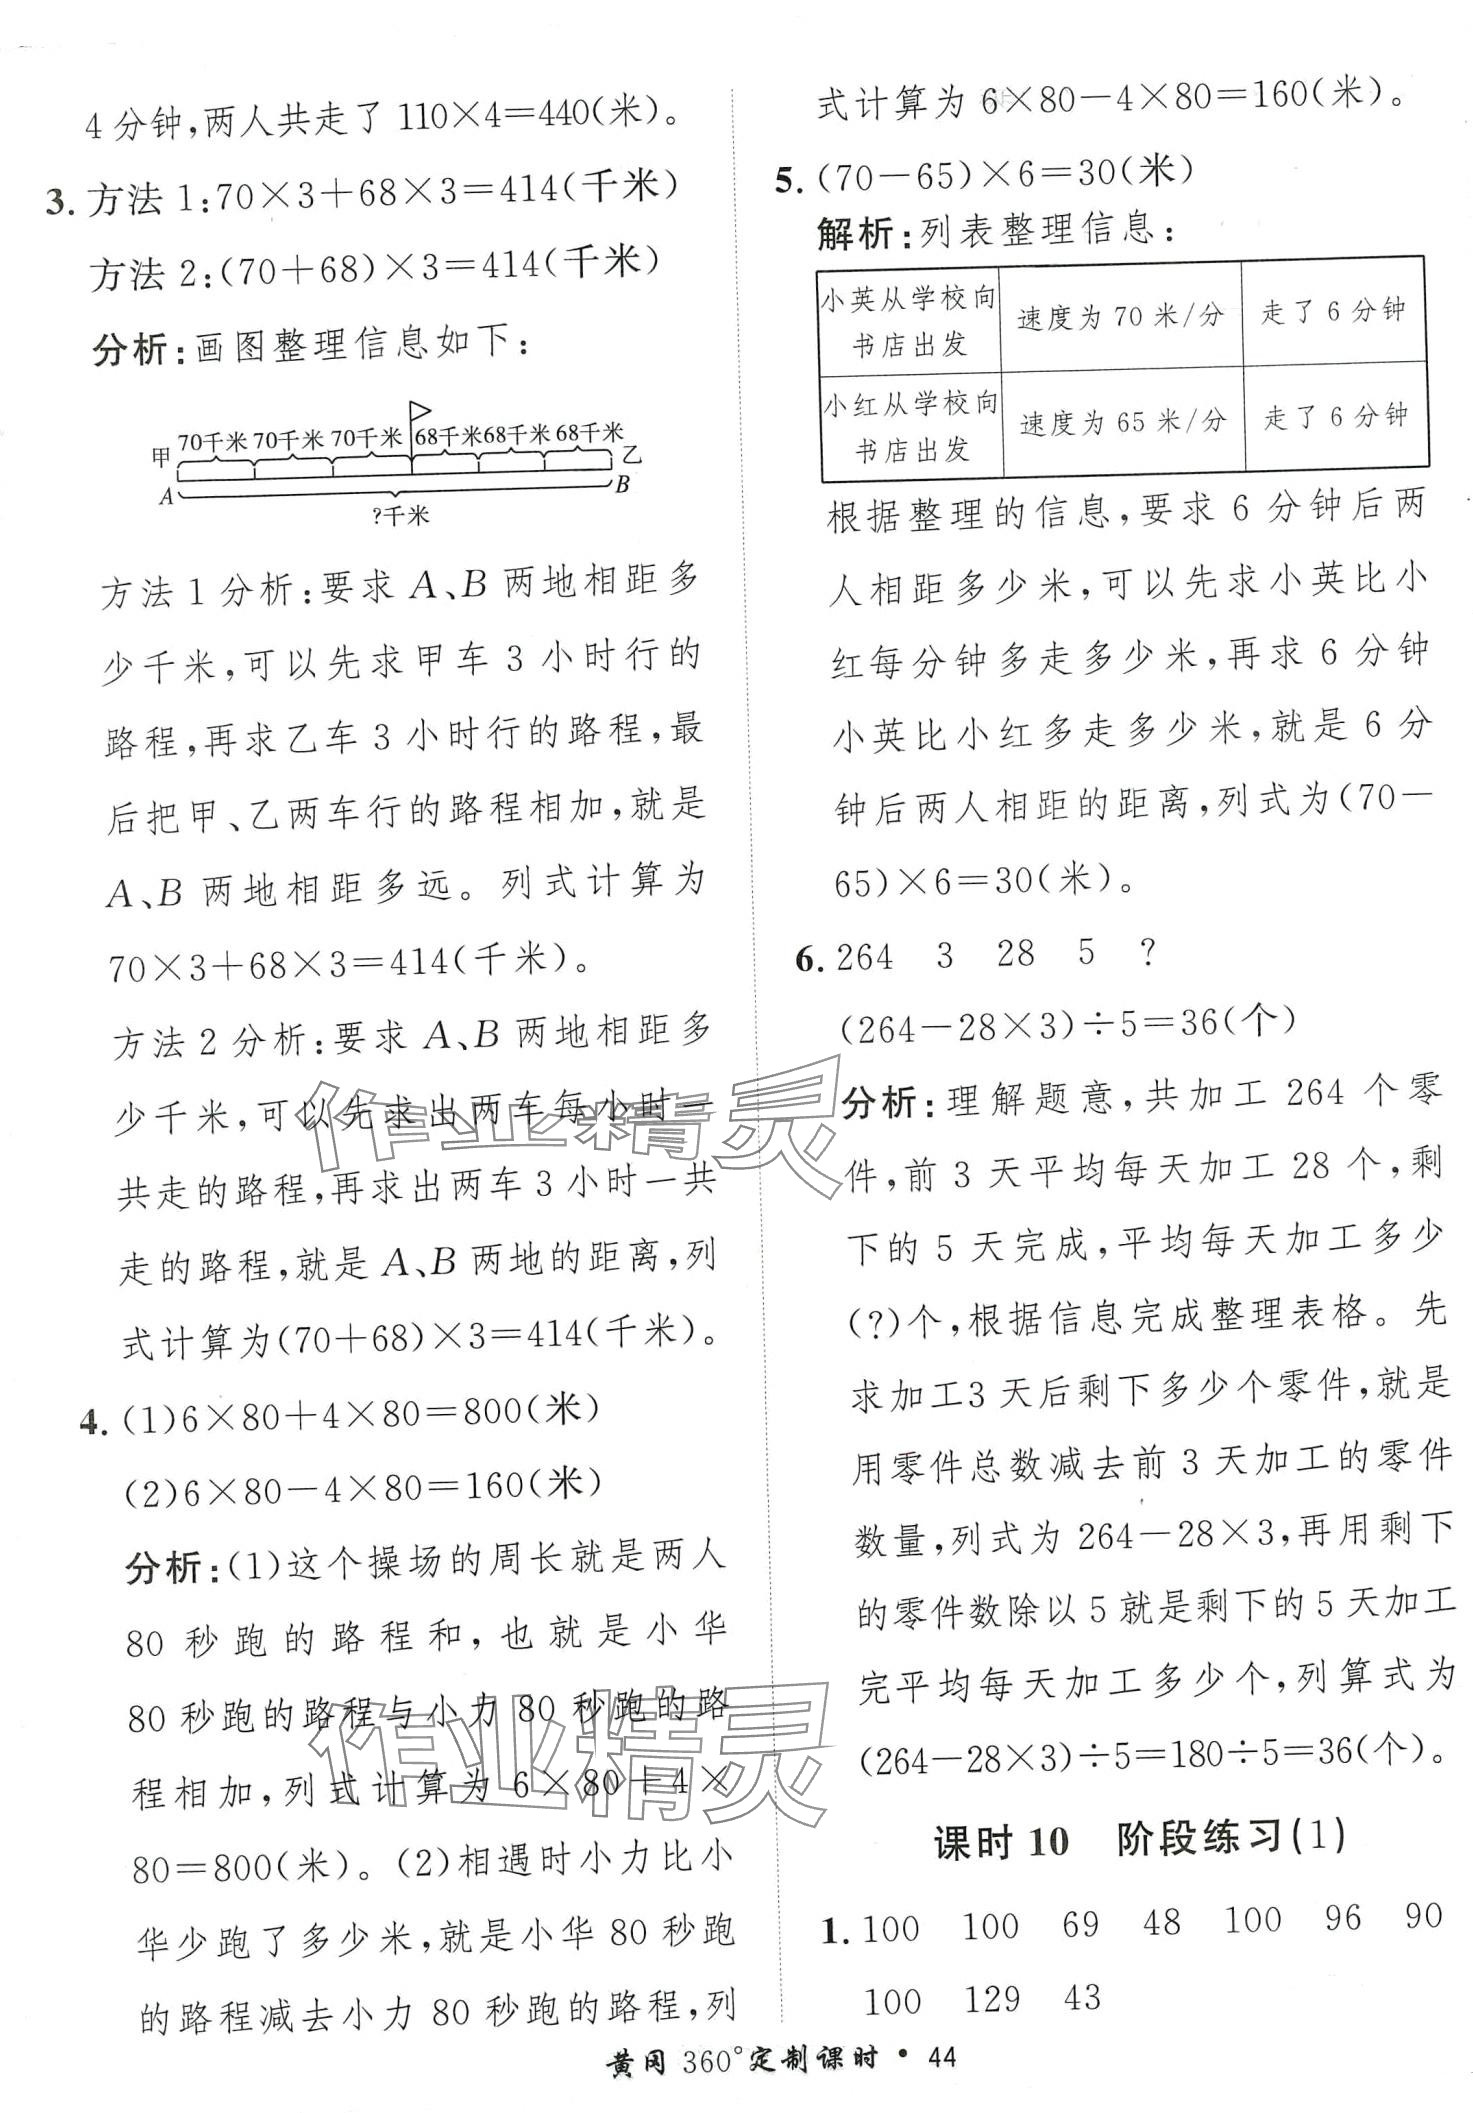 4分钟,两人共走了110×4=440(米)。
3. 方法1:70×3+68×3=414(千米)
方法2:(70+68)×3=414(千米)
分析:画图整理信息如下:
70千米 70千米 70千米 68千米 68千米 68千米
甲 乙
A B
?千米
方法1分析:要求A、B两地相距多
少千米,可以先求甲车3小时行的
路程,再求乙车3小时行的路程,最
后把甲、乙两车行的路程相加,就是
A、B两地相距多远。列式计算为
70×3+68×3=414(千米)。
方法2分析:要求A、B两地相距多
少千米,可以先求出两车每小时一
共走的路程,再求出两车3小时一共
走的路程,就是A、B两地的距离,列
式计算为(70+68)×3=414(千米)。
4. (1)6×80+4×80=800(米)
(2)6×80-4×80=160(米)
分析:(1)这个操场的周长就是两人
80秒跑的路程和,也就是小华
80秒跑的路程与小力80秒跑的路
程相加,列式计算为6×80+4×
80=800(米)。(2)相遇时小力比小
华少跑了多少米,就是小华80秒跑
的路程减去小力80秒跑的路程,列
式计算为6×80-4×80=160(米)。
5. (70-65)×6=30(米)
解析:列表整理信息:
小英从学校向书店出发 速度为70米/分 走了6分钟
小红从学校向书店出发 速度为65米/分 走了6分钟
根据整理的信息,要求6分钟后两
人相距多少米,可以先求小英比小
红每分钟多走多少米,再求6分钟
小英比小红多走多少米,就是6分
钟后两人相距的距离,列式为(70-
65)×6=30(米)。
6. 264 3 28 5 ?
(264-28×3)÷5=36(个)
分析:理解题意,共加工264个零
件,前3天平均每天加工28个,剩
下的5天完成,平均每天加工多少
(?)个,根据信息完成整理表格。先
求加工3天后剩下多少个零件,就是
用零件总数减去前3天加工的零件
数量,列式为264-28×3,再用剩下
的零件数除以5就是剩下的5天加工
完平均每天加工多少个,列算式为
(264-28×3)÷5=180÷5=36(个)。
课时10 阶段练习(1)
1. 100 100 69 48 100 96 90
100 129 43
黄冈360°定制课时·44
作业精灵
作业精灵